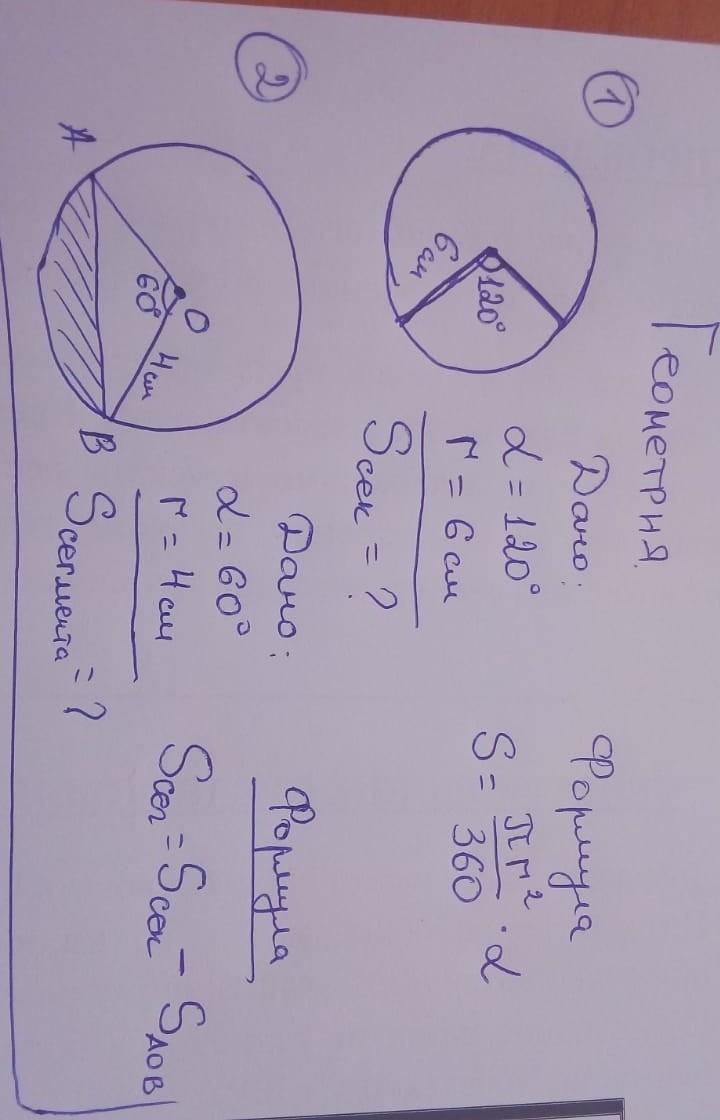 Геометрия
1
120°
6 см
Дано:
α = 120°
r = 6 см
Sсек = ?
Формула
S = πr²/360 · α
2
A
O
60°
4 см
B
Дано:
α = 60°
r = 4 см
Sсегмента = ?
Формула
Sсег = Sсек − SΔОВ